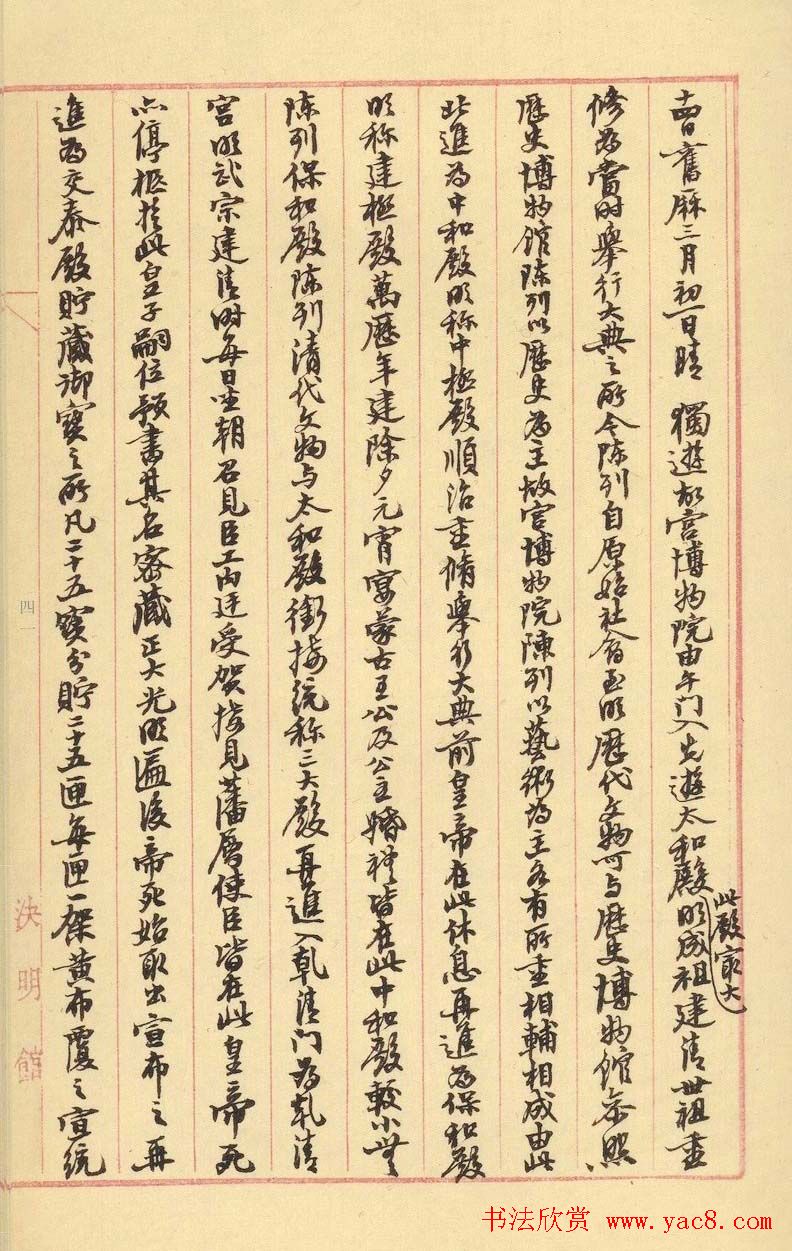 十四日舊厤三月初一日晴 獨遊故宮博物院由午门入先遊太和殿明成祖建清世祖重
此殿最大
修為當时舉行大典之所今陈列自原始社會至明歷代文物可与歷史博物馆参照
歷史博物馆陈列以歷史為主故宮博物院陳列以藝術為主各有所重相輔相成由此
北進為中和殿明称中極殿順治重脩舉行大典前皇帝在此休息再進為保和殿
明称建極殿萬歷年建除夕元宵宴蒙古王公及公主婚禮皆在此中和殿較小無
陈列保和殿陈列清代文物与太和殿銜接统称三大殿再進入乹清门為乹清
宮明武宗建清时每日坐朝召見臣工內廷受贺接見藩屬使臣皆在此皇帝死
亦停柩於此皇子嗣位预書其名密藏正大光明匾後帝死始取出宣布之再
進為交泰殿貯藏御寳之所凡二十五寳分貯二十五匣每匣一架黄布覆之宣統
四一
決明館
书法欣赏 www.yac8.com